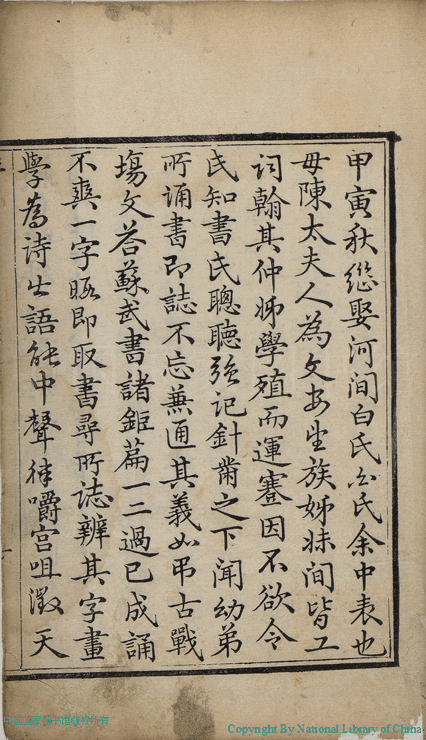 甲寅秋継娶河间白氏氏余中表也
母陳太夫人為文安族姊妹间皆工
词翰其仲姊學殖而運蹇因不欲令
氏知書氏聰聽强记針黹之下闻幼弟
所诵書即誌不忘兼通其義如弔古戰
塲文答蘇武書諸鉅篇一二過已成誦
不爽一字暇即取書尋所誌辨其字畫
學為诗出語能中聲律嚼宫咀徵天
Copyright By National Library of China